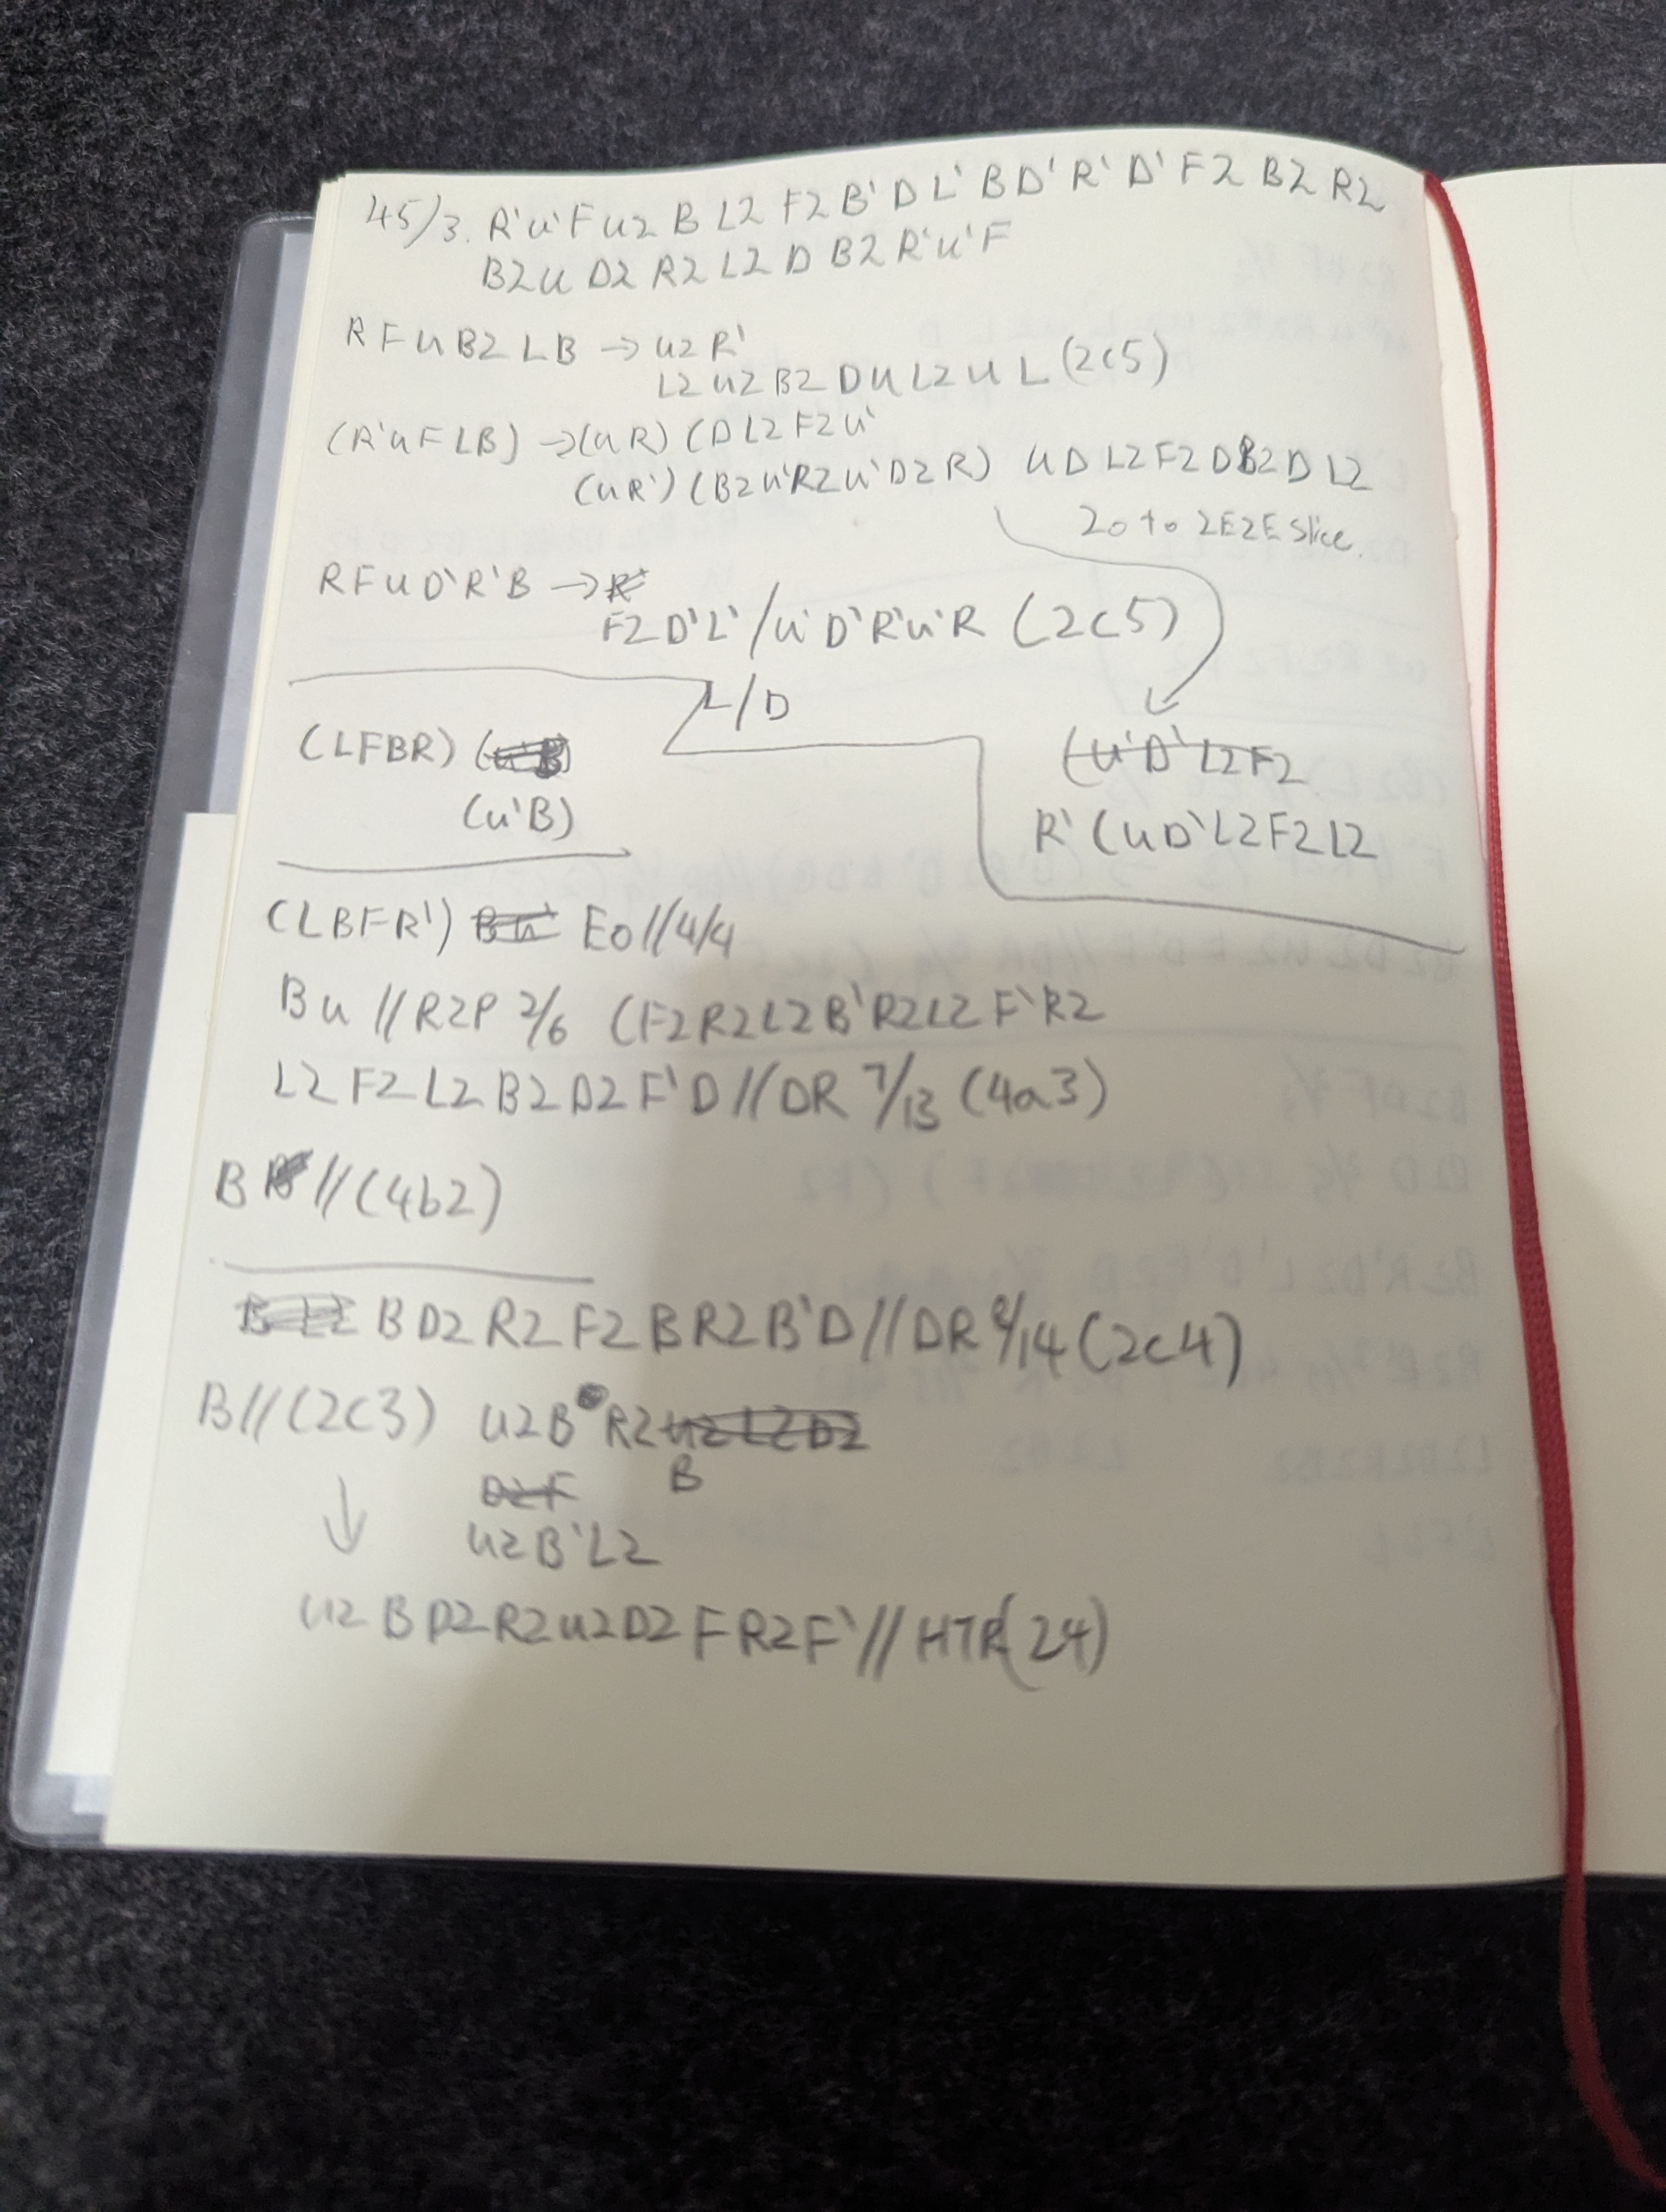 45/3. R'u'Fu2 B L2 F2 B' D L' B D' R' D' F2 B2 R2
B2 u D2 R2 L2 D B2 R'u'F
R F u B2 L B → u2 R'
L2 u2 B2 D u L2 u L (2c5)
(R'u F L B) → (u R) (D L2 F2 u'
(u R') (B2 u'R2 u'D2 R) u D L2 F2 D B2 D L2
20 to 2E2E slice.
R F u D'R'B →
F2 D'L'/u'D'R'u'R (2c5)
L/D
(LFBR)
(u'B)
(u'D'L2F2
R'(uD'L2F2L2
(LBFR') Eo//4/4
B u // R2P 2/6 (F2R2L2B'R2L2F'R2
L2 F2 L2 B2 D2 F'D // DR 7/13 (4a3)
B // (4b2)
B D2 R2 F2 B R2 B'D // DR 8/14 (2c4)
B // (2c3) u2 B R2 u2 L2 D2
B
D2 F
u2 B'L2
u2 B D2 R2 u2 D2 F R2 F' // HTR(24)